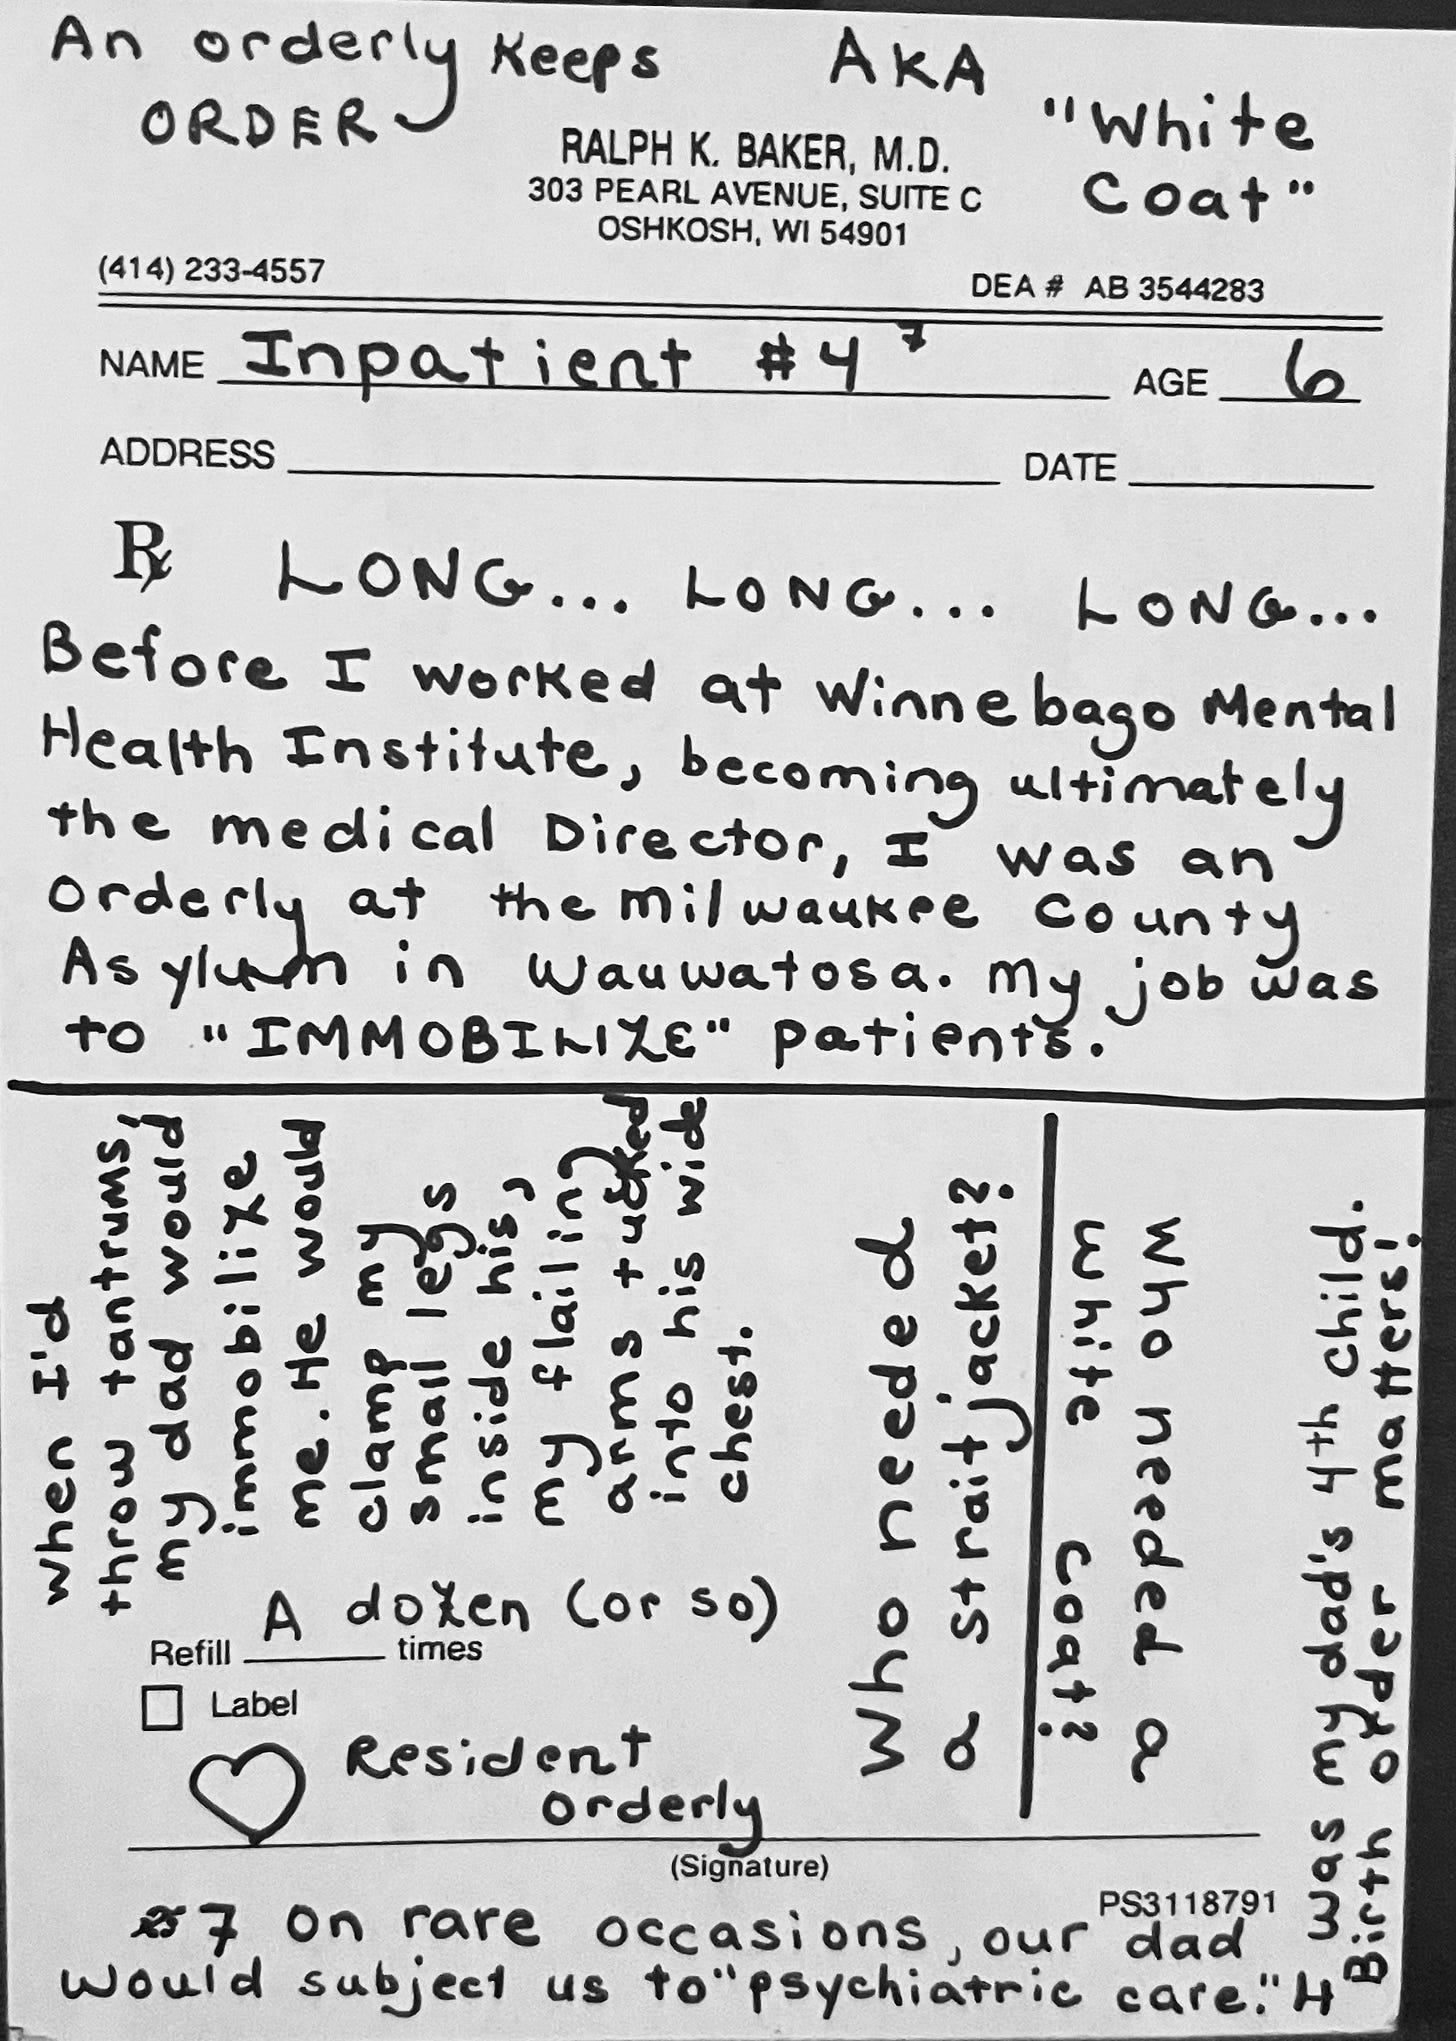 An orderly Keeps
ORDER
AKA
"White
Coat"
RALPH K. BAKER, M.D.
303 PEARL AVENUE, SUITE C
OSHKOSH, WI 54901
(414) 233-4557
DEA # AB 3544283
NAME Inpatient #4 7 AGE 6
ADDRESS DATE
Rx LONG... LONG... LONG...
Before I worked at Winnebago Mental
Health Institute, becoming ultimately
the medical Director, I was an
orderly at the Milwaukee County
Asylum in Wauwatosa. My job was
to "IMMOBILIZE" patients.
when I'd
throw tantrums,
my dad would
immobilize
me. He would
clamp my
small legs
inside his,
my flailing
arms tucked
into his wide
chest.
Who needed
a straitjacket?
Who needed a
white coat?
Refill A dozen (or so) times
Label
Resident
orderly
(Signature)
PS3118791
7 On rare occasions, our dad
would subject us to "psychiatric care." #4
was my dad's 4th child.
Birth order matters!